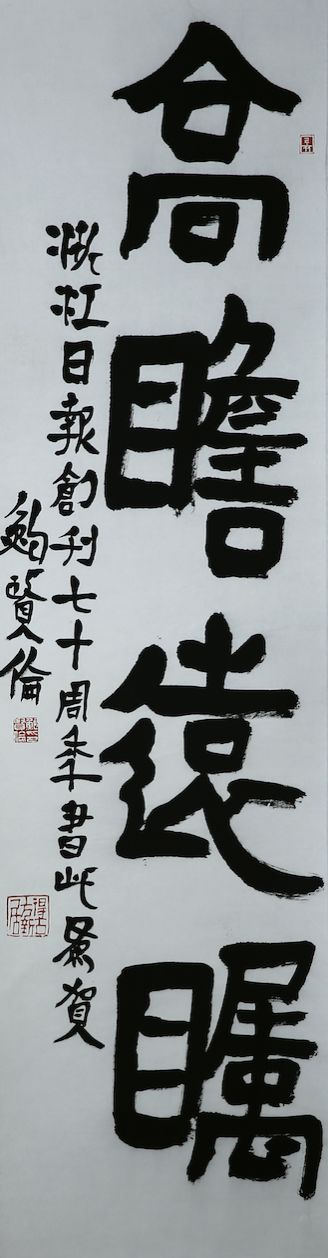 高瞻遠瞩
浙江日報創刊七十周年書此為賀
鮑賢倫